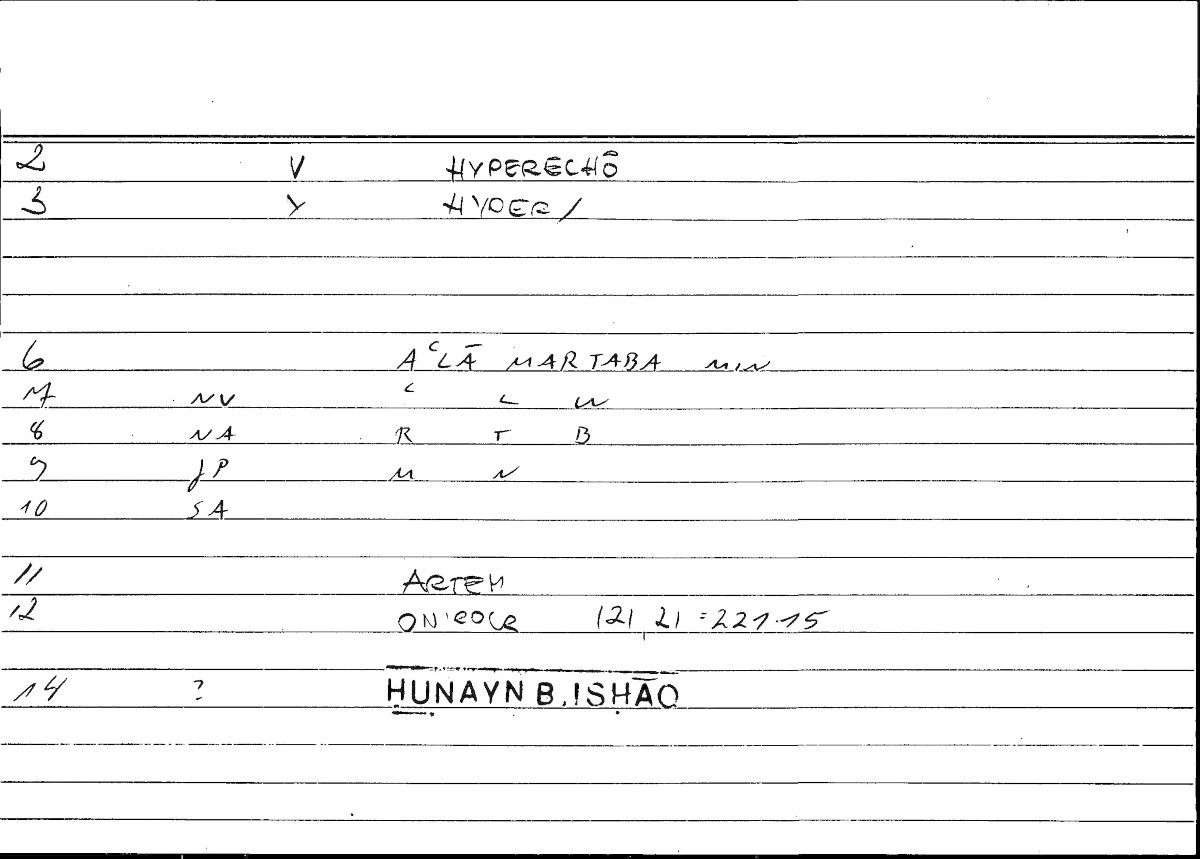 2 V HYPERECHŌ
3 Y HYPER/
6 AʿLĀ MARTABA MIN
7 NV ʿ L W
8 NA R T B
9 JP M N
10 SA
11 ARTEM
12 ONIROCR 121,21 = 221.15
14 ? ḤUNAYN B. ISḤĀQ